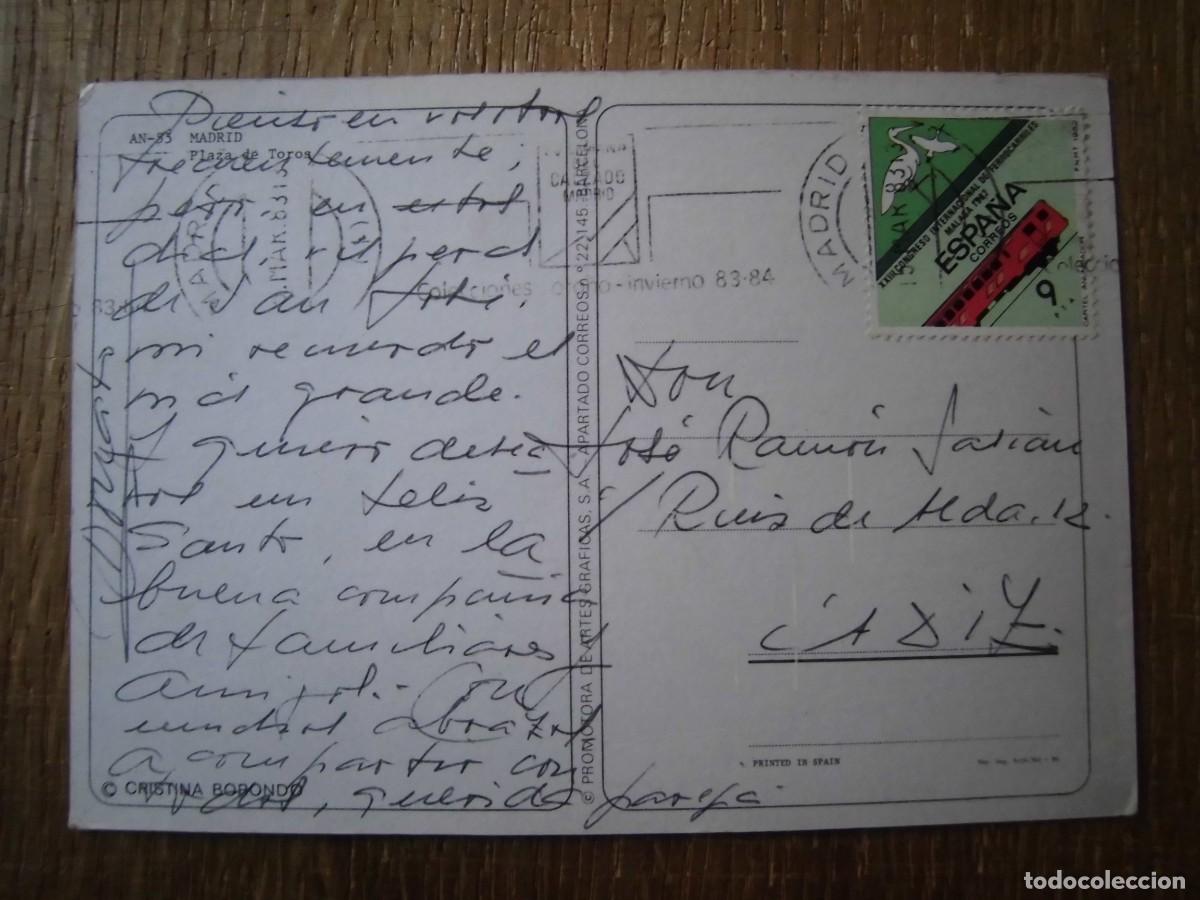 AN-53 MADRID
Plaza de Toros
Pienso en vosotros
frecuentemente,
pero en estos
dias, vispera
de San José,
mi recuerdo es
más grande.
Y quiero desea
ros un feliz
Santo, en la
buena compañia
de familiares y
amigos.- Con
muchos abrazos
a compartir con
todos, querida pareja
© CRISTINA BORONDO
© PROMOTORA DE ARTES GRAFICAS, S.A. APARTADO CORREOS n.º 22.145 BARCELONA
MADRID
MAR.83
CALZADO
MADRID
Colecciones otoño-invierno 83-84
MADRID
XXIII CONGRESO INTERNACIONAL DE FERROCARRILES
MALAGA 1982
ESPAÑA
CORREOS
9
PTA
F.N.M.T. 1982
Don
José Ramón
Ruiz de Alda, 12.
CADIZ.
PRINTED IN SPAIN
todocoleccion